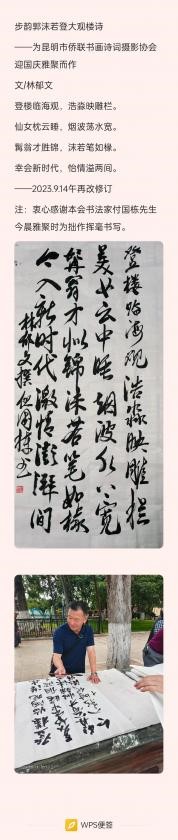 步韵郭沫若登大观楼诗
——为昆明市侨联书画诗词摄影协会
迎国庆雅聚而作
文/林郁文
登楼临海观，浩淼映雕栏。
仙女枕云睡，烟波荡水宽。
髯翁才胜锦，沫若笔如椽。
幸会新时代，怡情溢两间。
——2023.9.14午再改修订
注：衷心感谢本会书法家付国栋先生
今晨雅聚时为拙作挥毫书写。
登楼临海观浩淼映雕栏
美女云中睡烟波
髯翁才似锦沫若笔如椽
入新时代激情澎湃间
WPS便签